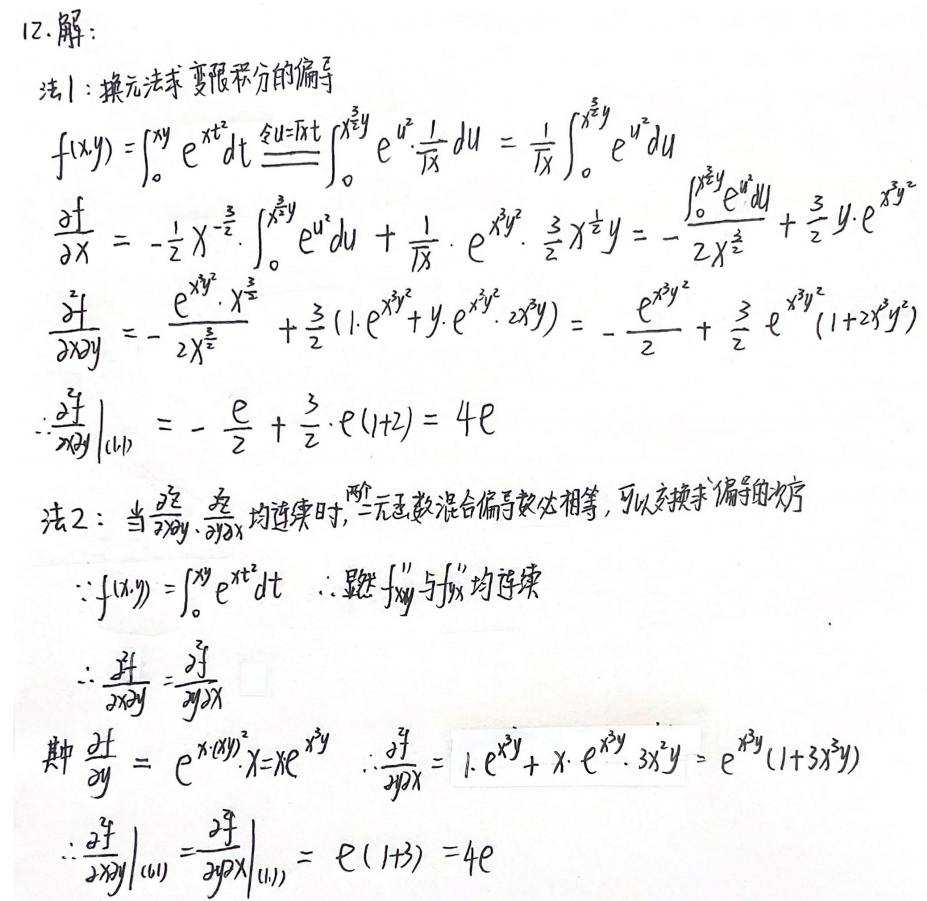 12.解:
法1:换元法求变限积分的偏导
f(x,y) = ∫₀^{xy} e^{xt²}dt 令u=√x t = ∫₀^{x^{3/2}y} e^{u²}·1/√x du = 1/√x ∫₀^{x^{3/2}y} e^{u²}du
∂f/∂x = -1/2 x^{-3/2}·∫₀^{x^{3/2}y} e^{u²}du + 1/√x · e^{x³y²}· 3/2 x^{1/2}y = - ∫₀^{x^{3/2}y} e^{u²}du / 2x^{3/2} + 3/2 y·e^{x³y²}
∂²f/∂x∂y = - e^{x³y²}·x^{3/2} / 2x^{3/2} + 3/2 (1·e^{x³y²}+y·e^{x³y²}·2x³y) = - e^{x³y²}/2 + 3/2 e^{x³y²}(1+2x³y²)
∴ ∂²f/∂x∂y |(1,1) = - e/2 + 3/2 ·e(1+2) = 4e
法2: 当 ∂²z/∂x∂y、∂²z/∂y∂x 均连续时,两个二元函数混合偏导数必相等,可以交换求偏导的次序
∵f(x,y) = ∫₀^{xy} e^{xt²}dt ∴显然 f''xy 与 f''yx 均连续
∴ ∂²f/∂x∂y = ∂²f/∂y∂x
其中 ∂f/∂y = e^{x·(xy)²}·x=xe^{x³y} ∴ ∂²f/∂y∂x = 1·e^{x³y}+ x·e^{x³y}·3x²y = e^{x³y}(1+3x³y)
∴ ∂²f/∂x∂y |(1,1) = ∂²f/∂y∂x |(1,1) = e(1+3) =4e